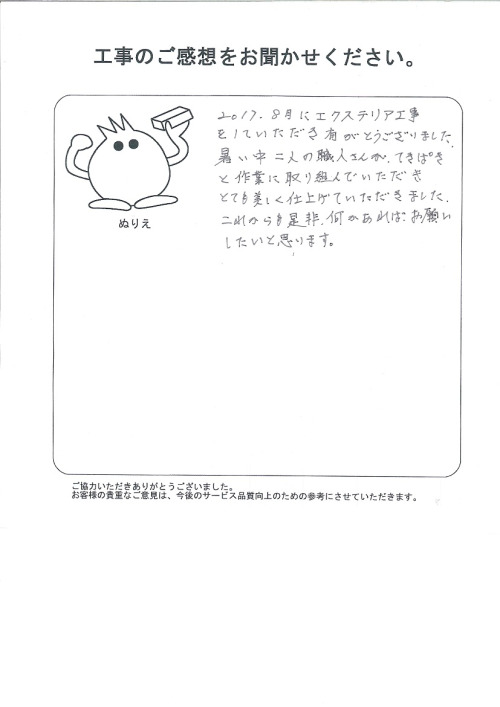 工事のご感想をお聞かせください。
2017.8月にエクステリア工事
をしていただき有がとうございました。
暑い中 二人の職人さんが、てきぱき
と作業に取り組んでいただき
とても美しく仕上げていただきました。
これからも是非、何かあればお願い
したいと思います。
ぬりえ
ご協力いただきありがとうございました。
お客様の貴重なご意見は、今後のサービス品質向上のための参考にさせていただきます。